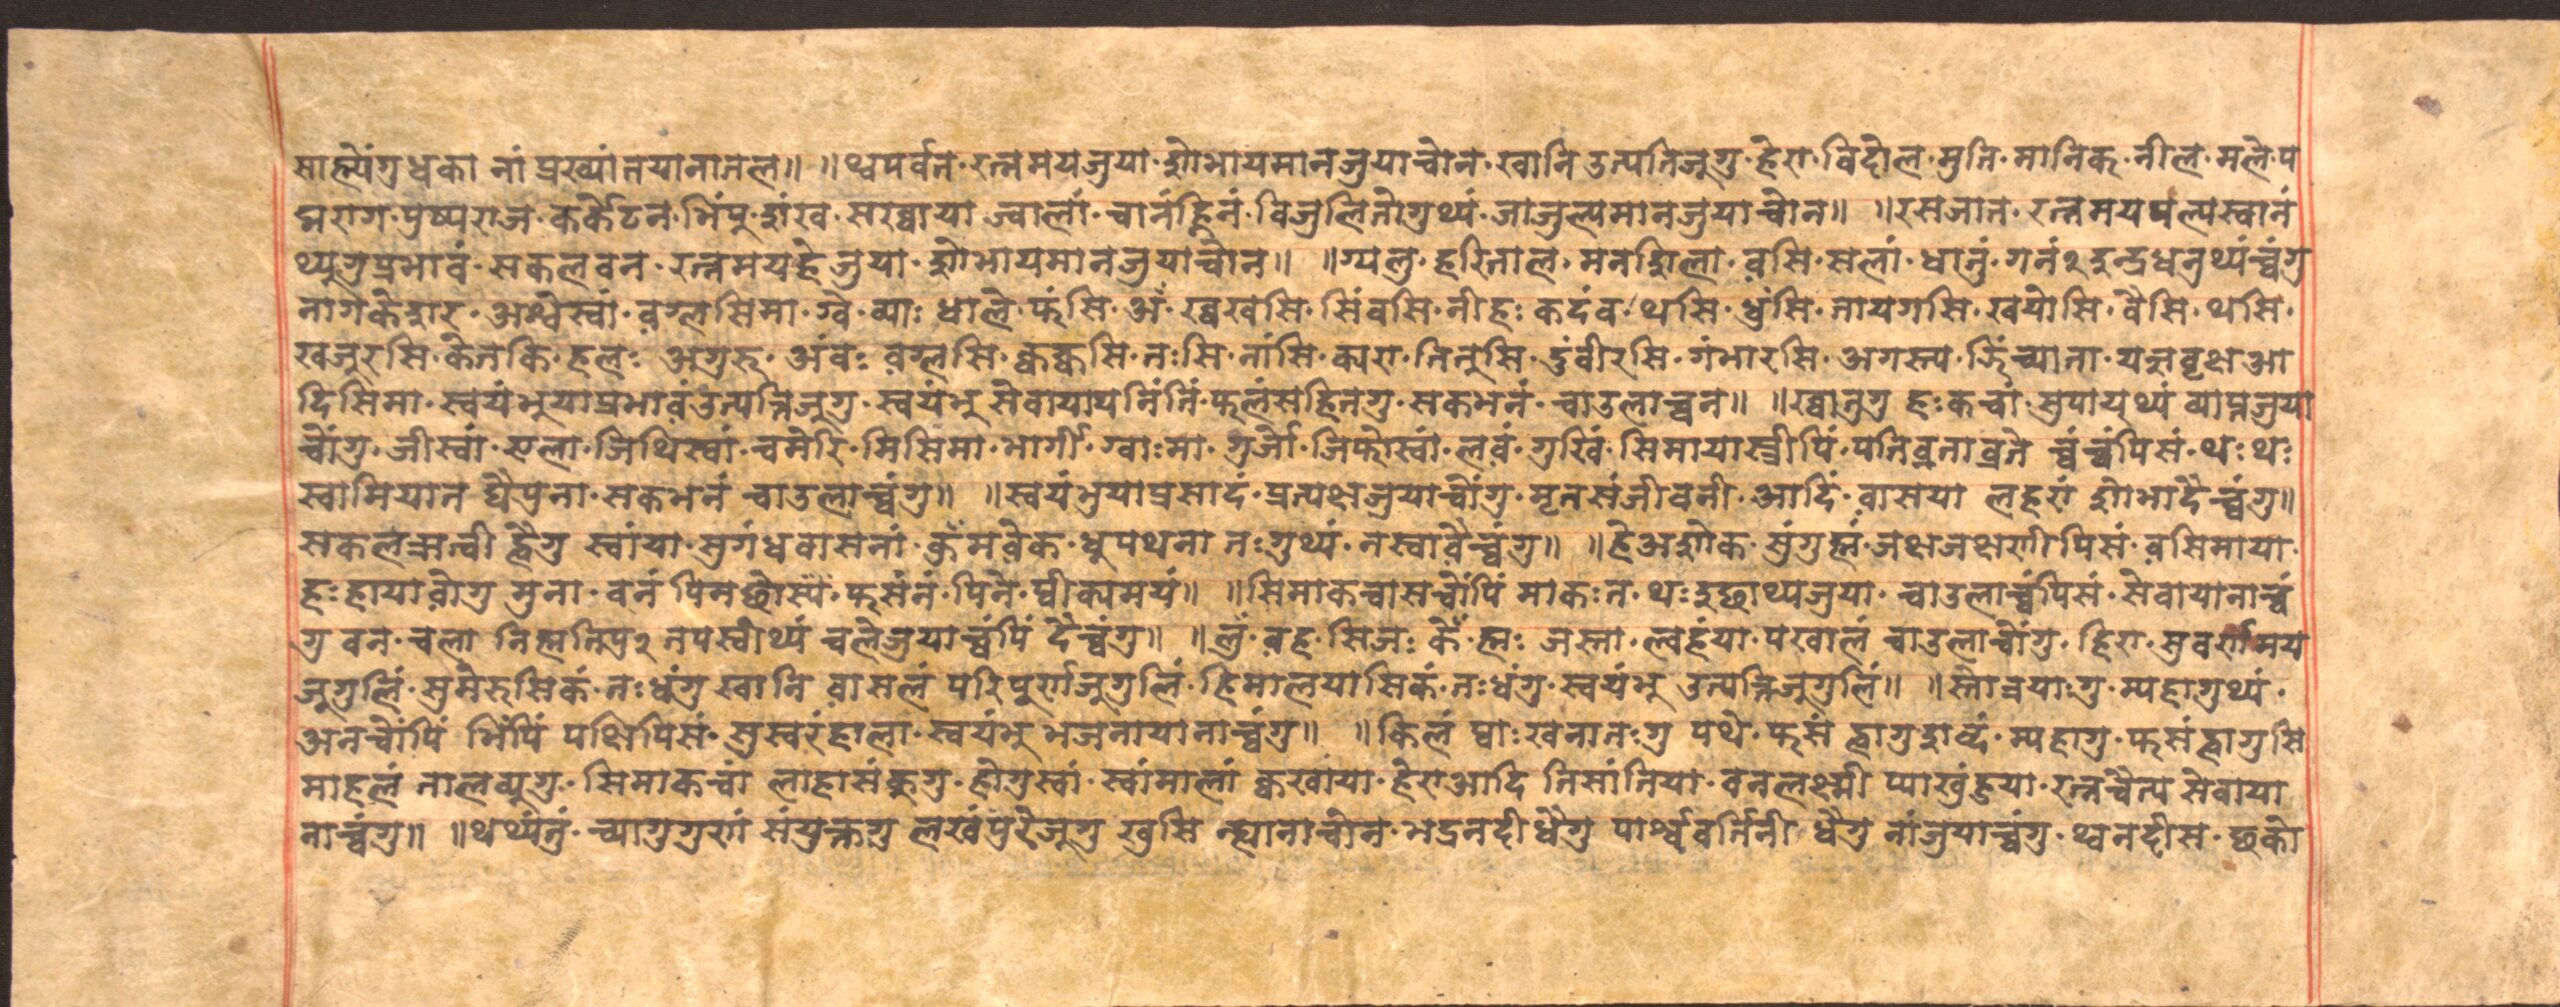 साल्मेंगु धका नां प्रख्यांतयानातल॥ ॥थ्वपर्वत· रत्नमयजुया· शोभायमानजुयाच्वोन· खानि उत्पतिजूगु· हेरा· विदोल· मुति· मानिक· नील· मले· प
द्मराग· पुष्पराज· कर्केटन· भिंपु· शंख· सखायाज्वालां· चानंह्निनं· विजुलितोगुथ्यं· जाजुल्यमानजुयाच्वोन॥ ॥रसजात· रत्नमयपल्यस्वानं
थ्यूगुप्रभावं· सकलवन· रत्नमयहेजुया· शोभायमानजुयाच्वोन॥ ॥ग्यलु· हरिताल· मनशिला· वसि· सलां· धातुं· गनं२ इन्द्रधनुथ्यंच्वंगु
नागकेशर· अश्वस्वां· वग्लसिमा· ग्वे· व्याः धाले· फंसि· अं· ख्वखसि· सिंवसि· नीहः कदंव· थसि· धुंसि· नायगसि· खयोसि· वैसि· थसि·
खजुरसि· केतकि· हलः अगुरू· अंवः वग्लसि· क्वक्वसि· नःसि· नांसि· क्यरा· तितुसि· दुंवीरसि· गंभारसि· अगस्त्य· च्यिाता· यलवृक्षआ
दिसिमा· स्वयंभुयाप्रभावंउत्पत्तिजुगु· स्वयंभु सेवायायतिंतिं· फूलंसहितगु· सकभनं· चाउलाच्वन॥ ॥ख्वातुगु हःकचां सुपाय्थ्यं व्याप्तजुया
च्वोंगु· जीस्वां· एला· जिथिस्वां· चमेरि· मिसिमा· भार्गी· ग्वाःमा· गुर्जो· जिफोस्वां· लवं· गुखिं· सिमायास्त्रीपिं· पतिव्रताव्रतं च्वंच्वंपिसं· थःथः
स्वामियात घ्यैपुना· सकभनं चाउलाच्वंगु॥ ॥स्वयंभुयाप्रसादं· प्रत्यक्षजुयाच्वोंगु· मृतसंजीवनी· आदिं· वासया लहरां शोभादैच्वंगु॥
सकल स्वांया· सुगंधवासनां· कुंमवेक· धुपथना तःगुथ्यं· नस्वावैच्वंगु॥ ॥हेअशोक· सुंगुह्मं· जक्षजक्षणीपिसं· वसिमाया·
हःहायावोगु मुना· वनं पिमछोस्यं· फसंनं· पिने· घ्वीक्यमयं॥ ॥सिमाकचासच्वोंपिं माकःत· थःइछाथ्यजुया· चाउलाच्वंपिसं· सेवायानाच्वं
गु वन· चला तपस्वीथ्यं चलेजुयाच्वंपिं दैच्वंगु॥ ॥लुं· वह· सिजः कें· ह्मः जस्ता· ल्वहंया· पखालं चाउलाच्वोंगु· हिरा· सुवर्णमय
जुगुलिं· सुमेरुसिकं· तःधंगु खानि वासलं परिपुर्णजुगुलिं· हिमालयासिकं· तःधंगु· स्वयंभु उत्पत्तिजुगुलिं॥ ॥स्तोत्रयाःगु· म्यहागुथ्यं·
अनच्वोंपिं भिंपिं पक्षिपिसं· सुस्वरंहाला· स्वयंभु भजनायानाच्वंगु॥ ॥किलं घ्वाःखनातःगु पथे· फसं ह्वागुशव्दं· म्यहागु· फसं ह्वागुसि
माहलं तालव्यूगु· सिमाकचां लाहासंकुगु· होगुस्वां· स्वांमालां क्वखाया· हेराआदि तिसांतिया· वनलक्ष्मी प्याखुंहुया· रत्नचैत्य सेवाया
नाच्वंगु॥ ॥थथ्यंतुं· च्यागुगुणं संयुक्तगु लखंपुरेजूगु खुसि न्ह्यानाच्वोन· भद्रनदीधैगु पार्श्ववर्तिनी धैगु नांजुयाच्वंगु· थ्वनदीस· छको